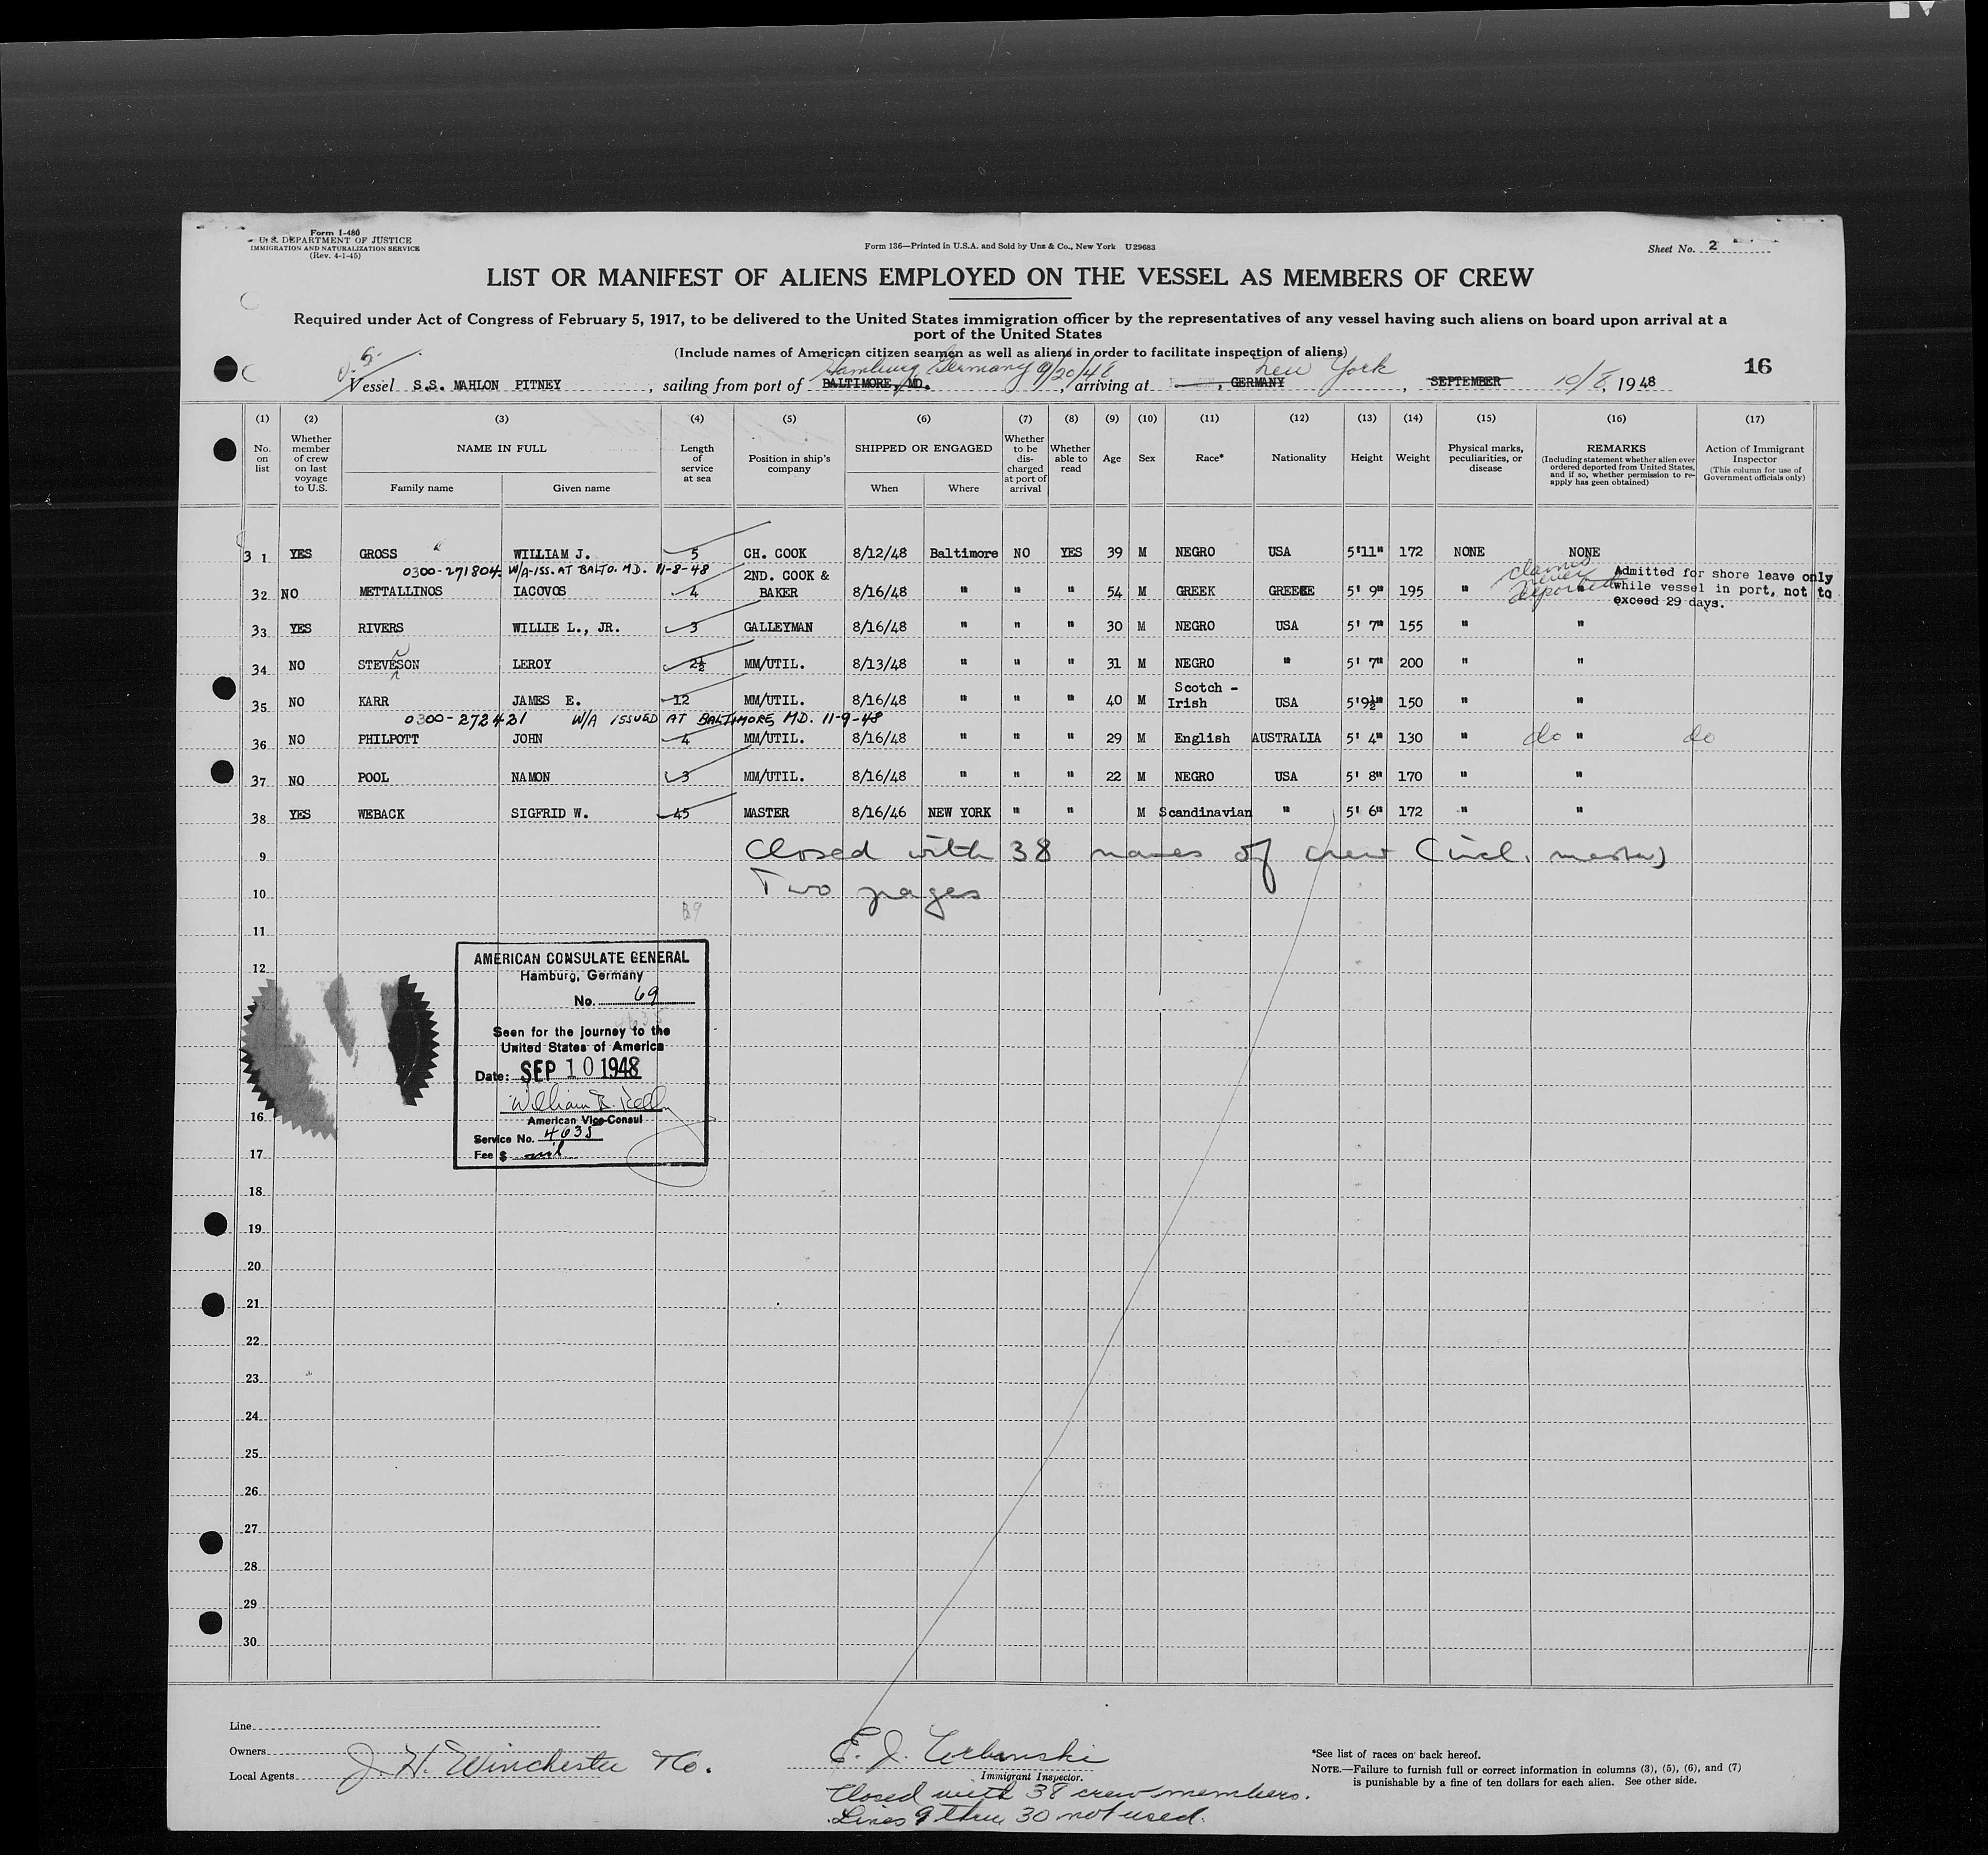 Form I-480
U. S. DEPARTMENT OF JUSTICE
IMMIGRATION AND NATURALIZATION SERVICE
(Rev. 4-1-45)
Form 136—Printed in U.S.A. and Sold by Unz & Co., New York U29683
Sheet No. 2
LIST OR MANIFEST OF ALIENS EMPLOYED ON THE VESSEL AS MEMBERS OF CREW
Required under Act of Congress of February 5, 1917, to be delivered to the United States immigration officer by the representatives of any vessel having such aliens on board upon arrival at a
port of the United States
(Include names of American citizen seamen as well as aliens in order to facilitate inspection of aliens)
16
Hamburg Germany 9/20/48 New York
Vessel S.S. MAHLON PITNEY, sailing from port of BALTIMORE, MD., arriving at , GERMANY, SEPTEMBER 10/8, 1948
(1) (2) (3) (4) (5) (6) (7) (8) (9) (10) (11) (12) (13) (14) (15) (16) (17)
No. on list
Whether member of crew on last voyage to U.S.
NAME IN FULL
Family name Given name
Length of service at sea
Position in ship's company
SHIPPED OR ENGAGED
When Where
Whether to be dis-charged at port of arrival
Whether able to read
Age
Sex
Race*
Nationality
Height
Weight
Physical marks, peculiarities, or disease
REMARKS
(Including statement whether alien ever ordered deported from United States, and if so, whether permission to re-apply has geen obtained)
Action of Immigrant Inspector
(This column for use of Government officials only)
3 1 YES GROSS WILLIAM J. 5 CH. COOK 8/12/48 Baltimore NO YES 39 M NEGRO USA 5'11" 172 NONE NONE
0300-271804. W/A-ISS. AT BALTO. MD. 11-8-48
32 NO METTALLINOS IACOVOS 4 2ND. COOK & BAKER 8/16/48 " " " 54 M GREEK GREECE 5' 9" 195 " claimes never deported Admitted for shore leave only while vessel in port, not to exceed 29 days.
33 YES RIVERS WILLIE L., JR. 3 GALLEYMAN 8/16/48 " " " 30 M NEGRO USA 5' 7" 155 " "
34 NO STEVESON LEROY 2½ MM/UTIL. 8/13/48 " " " 31 M NEGRO " 5' 7" 200 " "
35 NO KARR JAMES E. 12 MM/UTIL. 8/16/48 " " " 40 M Scotch - Irish USA 5'9½" 150 " "
0300-272421 W/A ISSUED AT BALTIMORE, MD. 11-9-48
36 NO PHILPOTT JOHN 4 MM/UTIL. 8/16/48 " " " 29 M English AUSTRALIA 5' 4" 130 " do " do
37 NO POOL NAMON 3 MM/UTIL. 8/16/48 " " " 22 M NEGRO USA 5' 8" 170 " "
38 YES WEBACK SIGFRID W. 45 MASTER 8/16/46 NEW YORK " " M Scandinavian " 5' 6" 172 " "
9 Closed with 38 names of crew (incl. master)
10 Two pages
11
12
AMERICAN CONSULATE GENERAL
Hamburg, Germany
No. 69
Seen for the journey to the
United States of America
Date: SEP 10 1948
William B. Kelly
American Vice-Consul
Service No. 4635
Fee $ nil
16
17
18
19
20
21
22
23
24
25
26
27
28
29
30
Line
Owners
Local Agents J. H. Winchester & Co.
E. J. Urbanski
Immigrant Inspector.
Closed with 38 crew members.
Lines 9 thru 30 not used.
*See list of races on back hereof.
NOTE.—Failure to furnish full or correct information in columns (3), (5), (6), and (7)
is punishable by a fine of ten dollars for each alien. See other side.